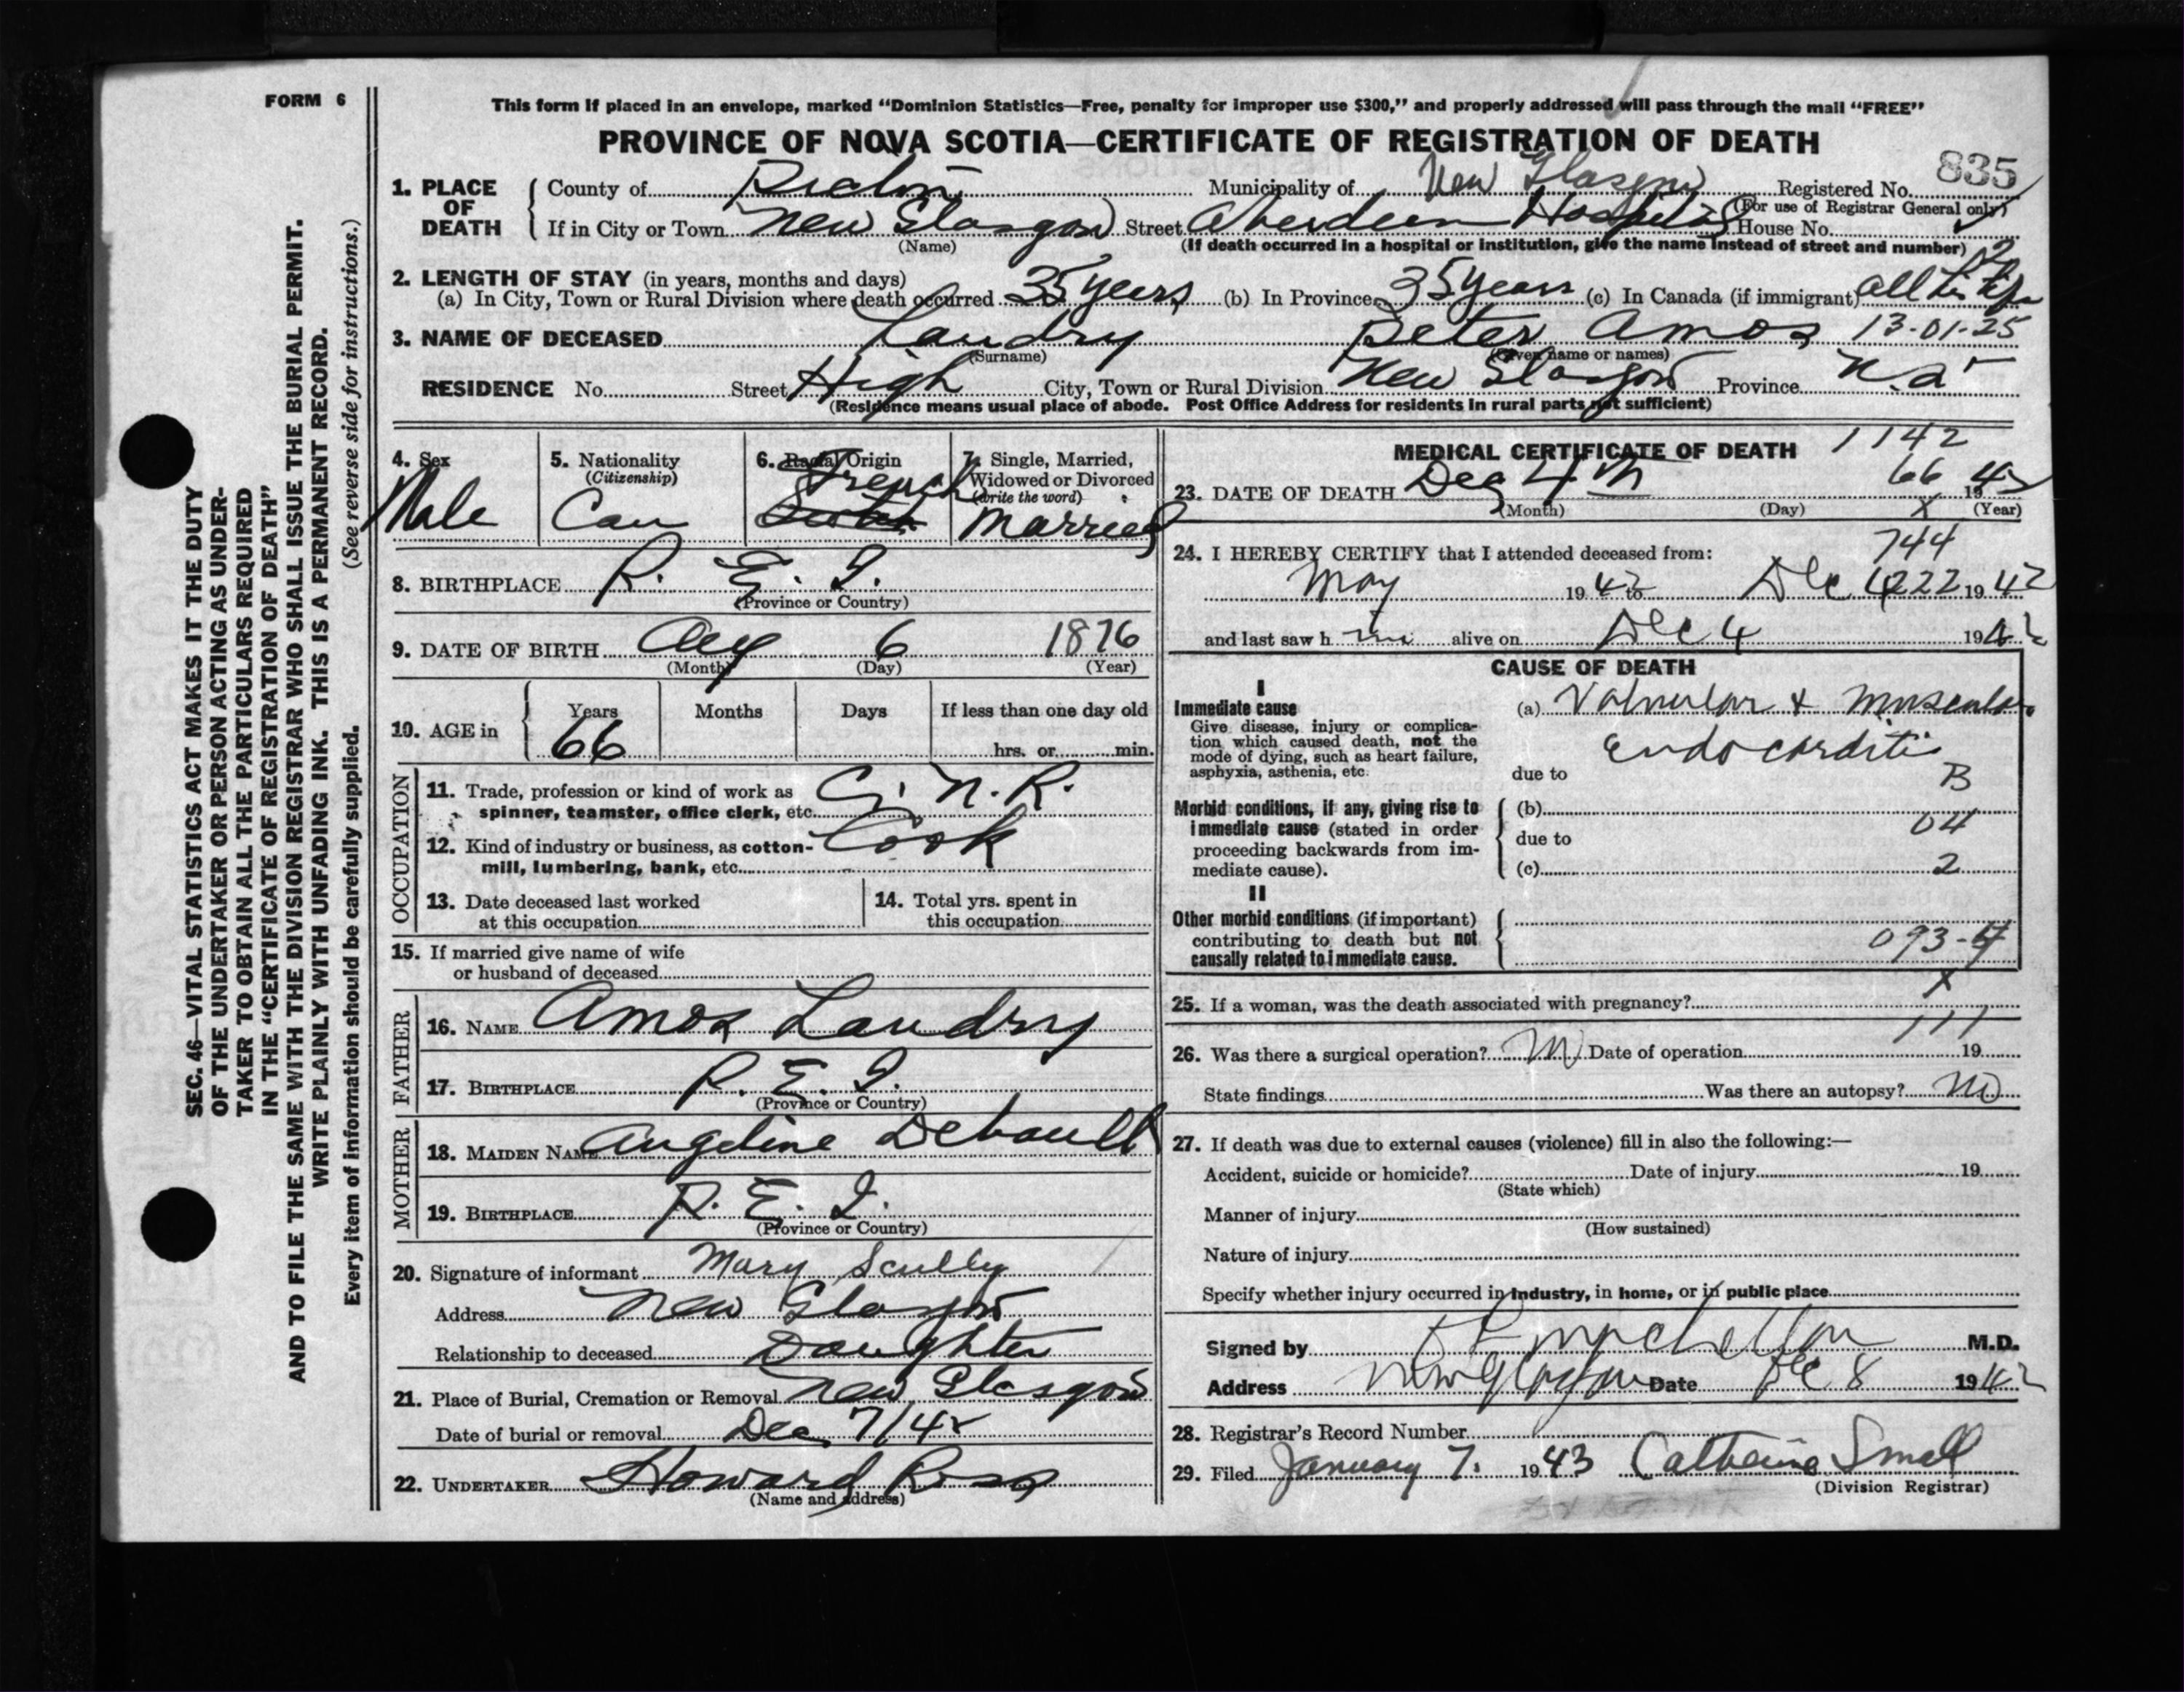 FORM 6
This form if placed in an envelope, marked “Dominion Statistics—Free, penalty for improper use $300,” and properly addressed will pass through the mail “FREE”
PROVINCE OF NOVA SCOTIA—CERTIFICATE OF REGISTRATION OF DEATH
835
1. PLACE OF DEATH County of Pictou Municipality of New Glasgow Registered No.
(For use of Registrar General only)
If in City or Town New Glasgow Street Aberdeen Hospital House No.
(Name) (If death occurred in a hospital or institution, give the name instead of street and number)
2. LENGTH OF STAY (in years, months and days)
(a) In City, Town or Rural Division where death occurred 35 years (b) In Province 35 years (c) In Canada (if immigrant) all his life
3. NAME OF DECEASED Landry Peter Amos 13-01-25
(Surname) (Given name or names)
RESIDENCE No. Street High City, Town or Rural Division New Glasgow Province N.S.
(Residence means usual place of abode. Post Office Address for residents in rural parts not sufficient)
4. Sex
Male
5. Nationality
(Citizenship)
Can
6. Racial Origin
French
7. Single, Married, Widowed or Divorced
(write the word)
Married
8. BIRTHPLACE P. E. I.
(Province or Country)
9. DATE OF BIRTH Aug 6 1876
(Month) (Day) (Year)
10. AGE in Years Months Days If less than one day old
66 hrs. or min.
OCCUPATION
11. Trade, profession or kind of work as spinner, teamster, office clerk, etc. C. N. R.
12. Kind of industry or business, as cotton-mill, lumbering, bank, etc. Cook
13. Date deceased last worked at this occupation
14. Total yrs. spent in this occupation
15. If married give name of wife or husband of deceased
FATHER
16. NAME Amos Landry
17. BIRTHPLACE P. E. I.
(Province or Country)
MOTHER
18. MAIDEN NAME Angeline
19. BIRTHPLACE P. E. I.
(Province or Country)
20. Signature of informant Mary Scully
Address New Glasgow
Relationship to deceased Daughter
21. Place of Burial, Cremation or Removal New Glasgow
Date of burial or removal Dec 7/42
22. UNDERTAKER Howard Ross
(Name and address)
MEDICAL CERTIFICATE OF DEATH
1142
66
23. DATE OF DEATH Dec 4th 1942
(Month) (Day) (Year)
X
24. I HEREBY CERTIFY that I attended deceased from:
744
May 1942 to Dec 4 222 1942
and last saw him alive on Dec 4 1942
CAUSE OF DEATH
I
Immediate cause
Give disease, injury or complication which caused death, not the mode of dying, such as heart failure, asphyxia, asthenia, etc.
(a) Valvular & Muscular
Endocarditis
due to
B
Morbid conditions, if any, giving rise to immediate cause (stated in order proceeding backwards from immediate cause).
(b)
04
due to
(c) 2
II
Other morbid conditions (if important) contributing to death but not causally related to immediate cause.
093-
X
25. If a woman, was the death associated with pregnancy?
111
26. Was there a surgical operation? No Date of operation 19
State findings Was there an autopsy? No
27. If death was due to external causes (violence) fill in also the following:—
Accident, suicide or homicide? Date of injury 19
(State which)
Manner of injury
(How sustained)
Nature of injury
Specify whether injury occurred in industry, in home, or in public place
Signed by M.D.
Address New Glasgow Date Dec 8 1942
28. Registrar's Record Number
29. Filed January 7. 1943 Catherine Small
(Division Registrar)
SEC. 46—VITAL STATISTICS ACT MAKES IT THE DUTY
OF THE UNDERTAKER OR PERSON ACTING AS UNDER-
TAKER TO OBTAIN ALL THE PARTICULARS REQUIRED
IN THE “CERTIFICATE OF REGISTRATION OF DEATH”
AND TO FILE THE SAME WITH THE DIVISION REGISTRAR WHO SHALL ISSUE THE BURIAL PERMIT.
WRITE PLAINLY WITH UNFADING INK. THIS IS A PERMANENT RECORD.
Every item of information should be carefully supplied. (See reverse side for instructions.)